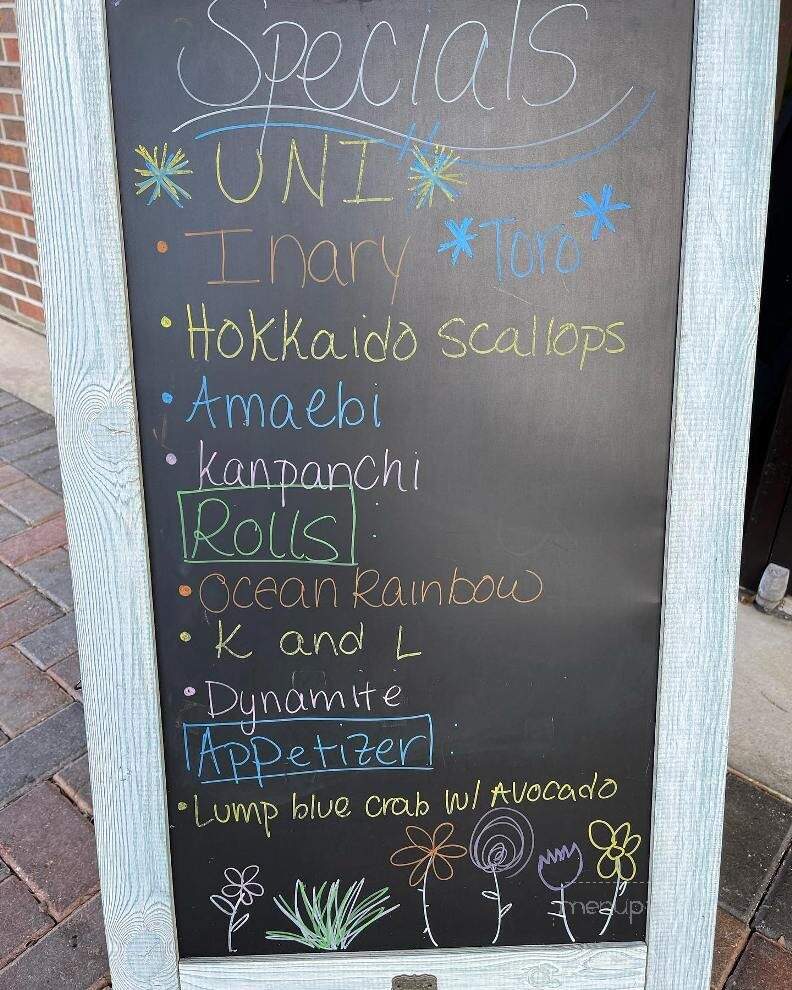 Specials
* UNI *
• Inary *Toro*
• Hokkaido scallops
• Amaebi
• Kanpanchi
Rolls :
• Ocean Rainbow
• K and L
• Dynamite
Appetizer :
• Lump blue crab w/ Avocado
menup